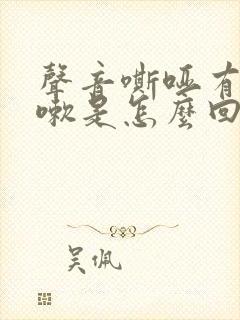 聲音嘶啞有
嗽是怎麼回
吴佩